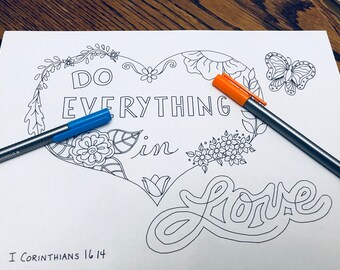 DO
EVERYTHING
in
Love
I CORINTHIANS 16.14